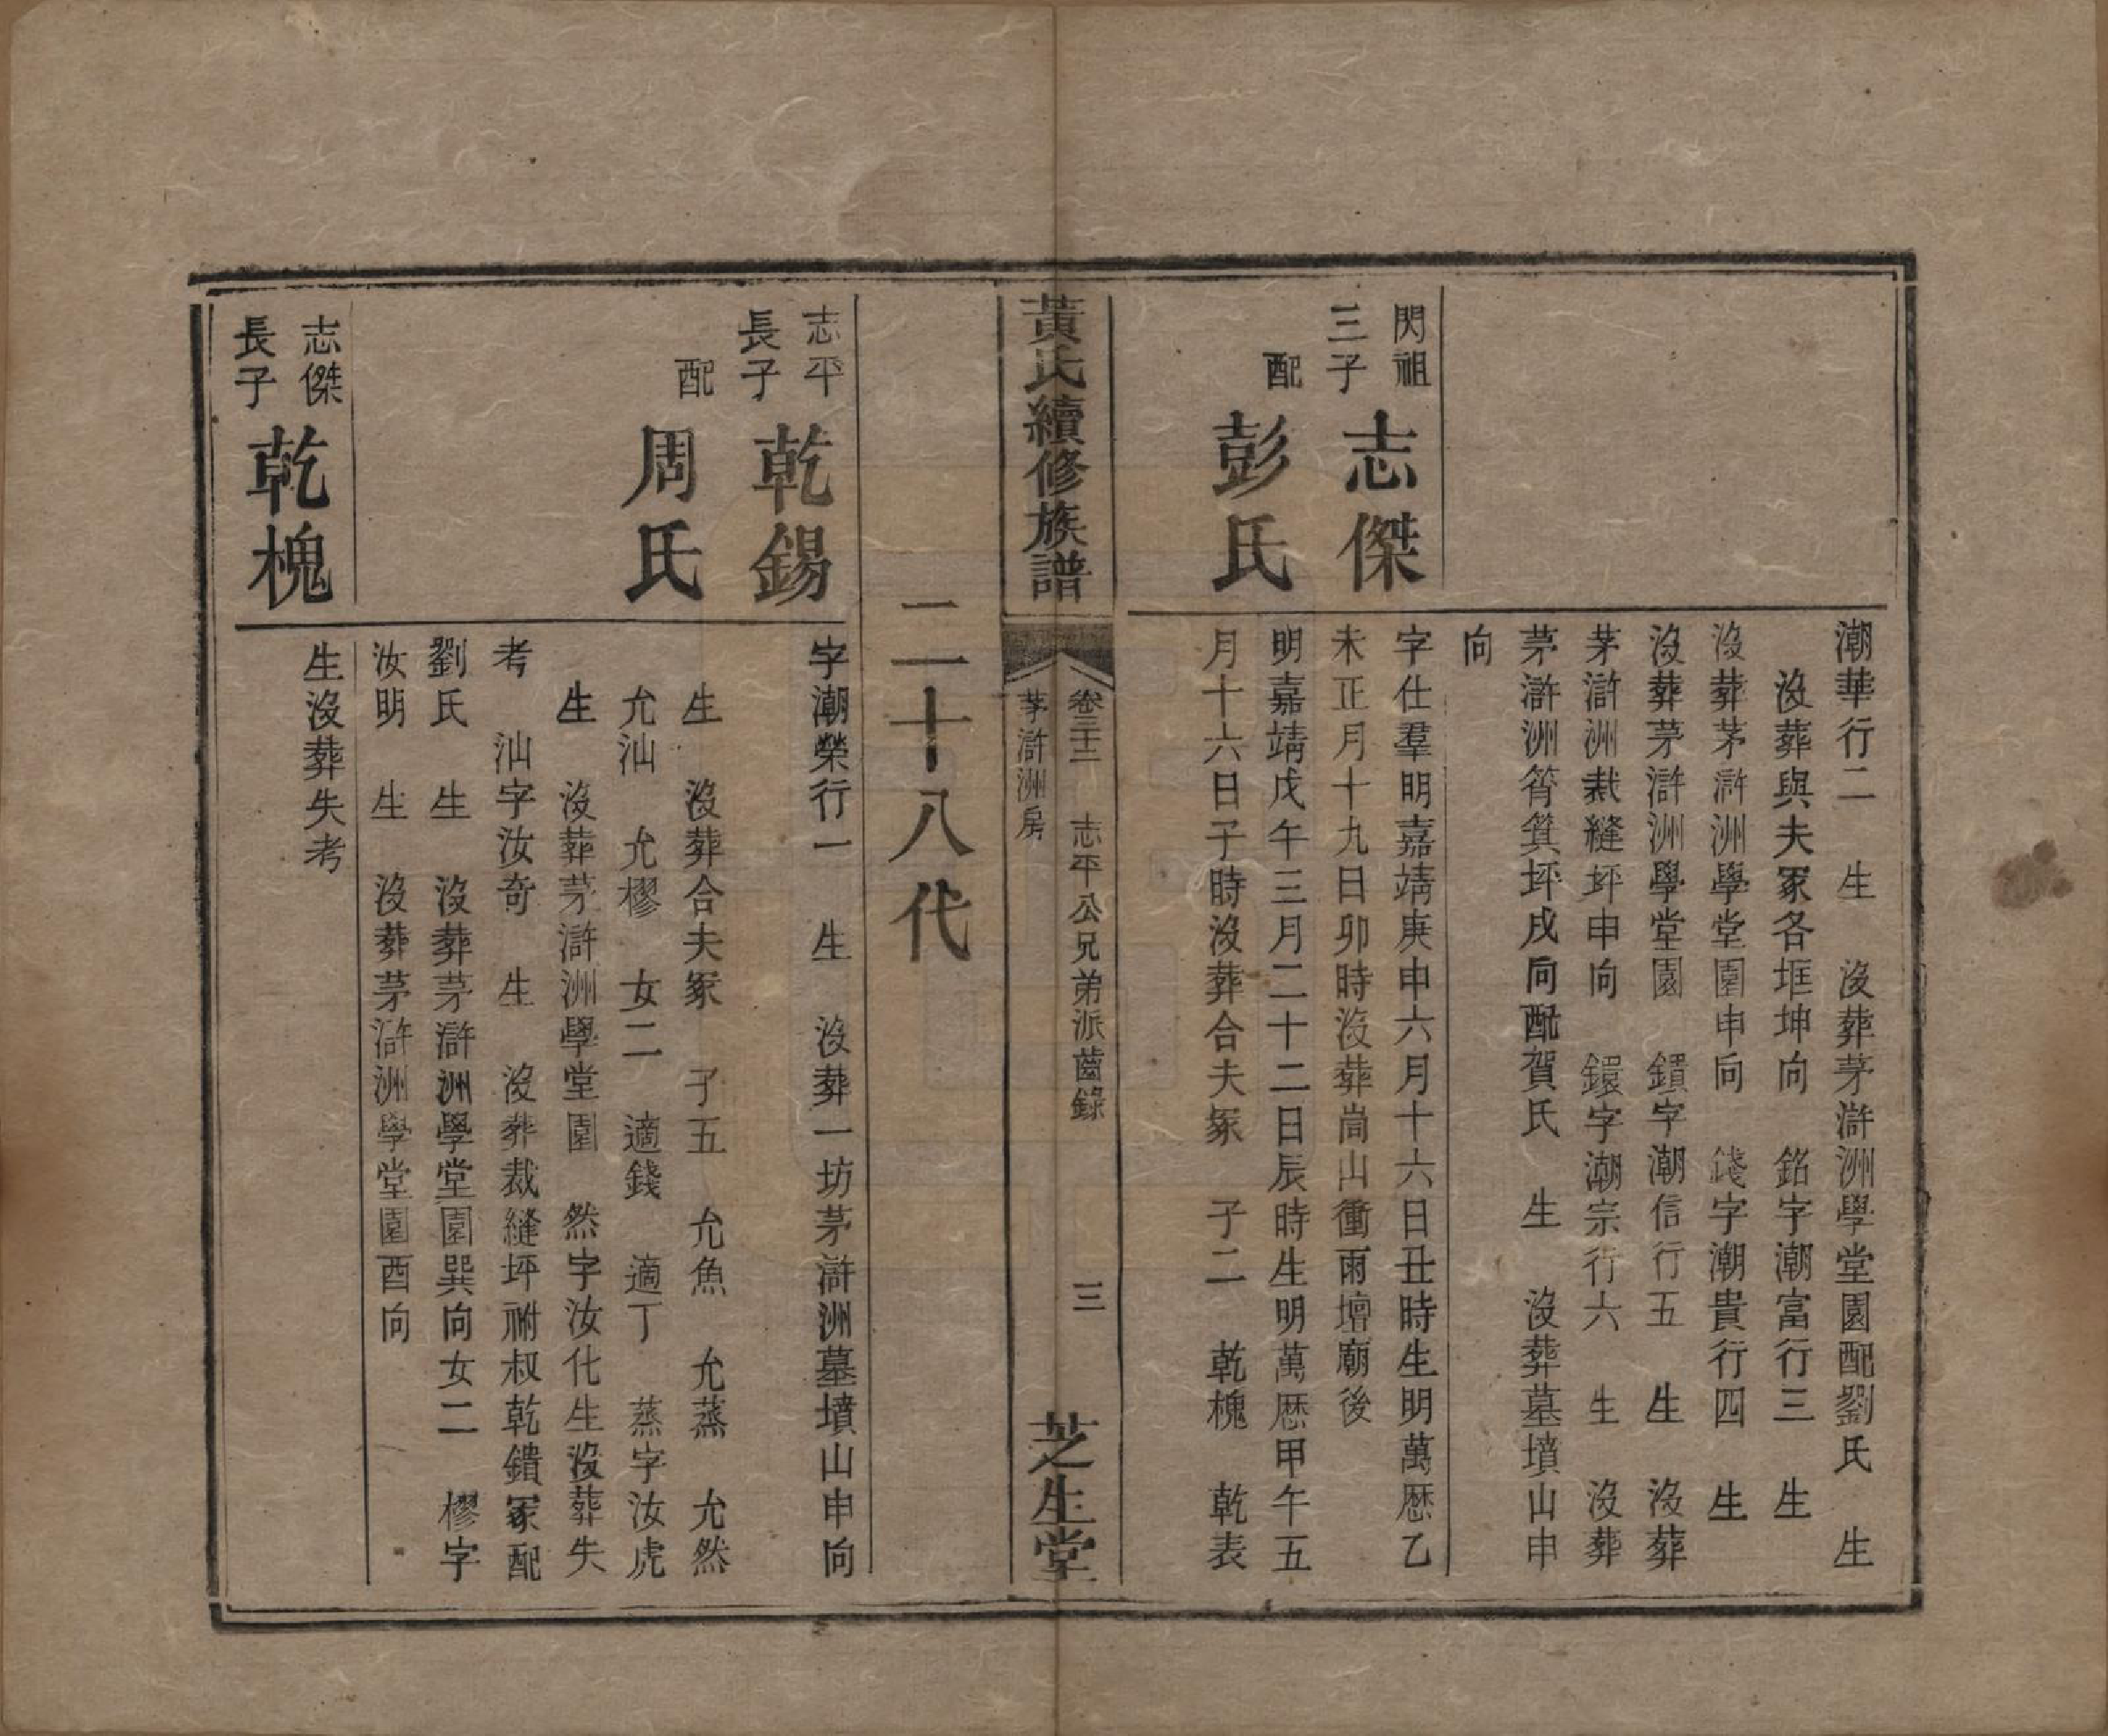 潮華行二　生　沒葬茅滸洲學堂園配劉氏　生
沒葬與夫冢各堆坤向　銘字潮富行三　生
沒葬茅滸洲學堂園申向　錢字潮貴行四　生
沒葬茅滸洲學堂園　鑕字潮信行五　生　沒葬
茅滸洲裁縫坪申向　鐶字潮宗行六　生　沒葬
茅滸洲筲箕坪戌向配賀氏　生　沒葬墓墳山申
向
閃祖
三子
志傑
字仕羣明嘉靖庚申六月十六日丑時生明萬歷乙
未正月十九日卯時沒葬崗山衝雨壇廟後
配
彭氏
明嘉靖戊午三月二十二日辰時生明萬歷甲午五
月十六日子時沒葬合夫冢　子二　乾槐　乾表
黃氏續修族譜
卷三十二　志平公兄弟派齒錄　三
茅滸洲房
芝生堂
二十八代
志平
長子
乾錫
字潮榮行一　生　沒葬一坊茅滸洲墓墳山申向
配
周氏
生　沒葬合夫冢　子五　允魚　允蒸　允然
允汕　允樛　女二　適錢　適丁　蒸字汝虎
生　沒葬茅滸洲學堂園　然字汝化生沒葬失
考　汕字汝奇　生　沒葬裁縫坪祔叔乾鐀冢配
劉氏　生　沒葬茅滸洲學堂園巽向女二　樛字
汝明　生　沒葬茅滸洲學堂園酉向
志傑
長子
乾槐
生沒葬失考